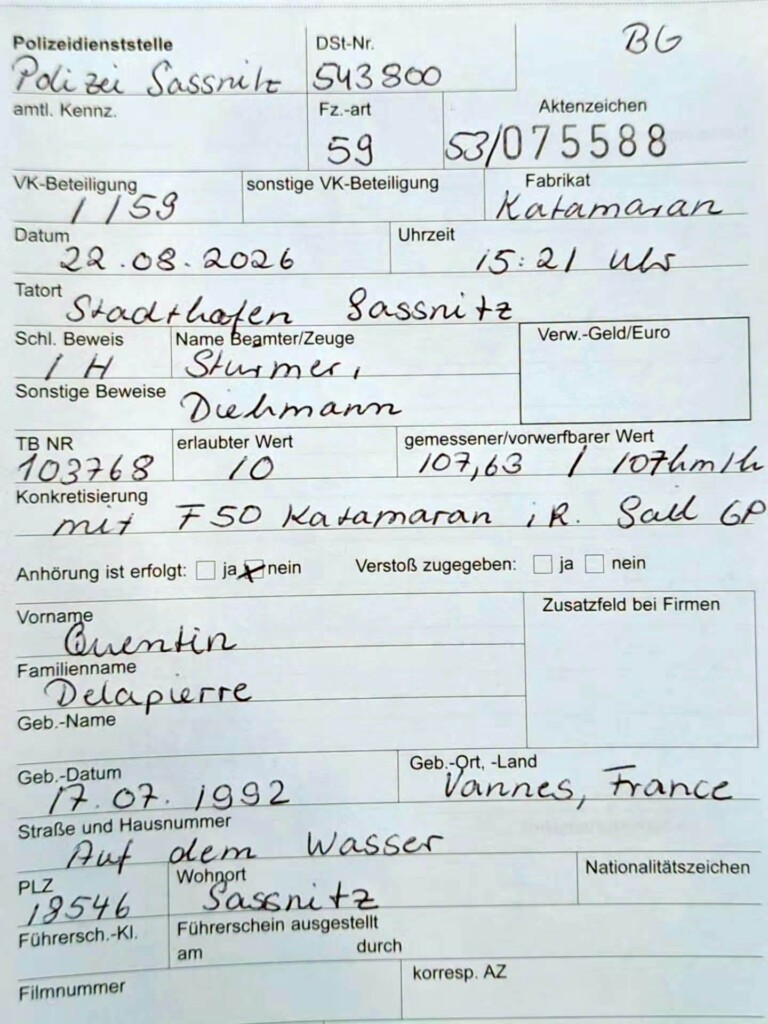 BG
Polizeidienststelle DSt-Nr.
Polizei Sassnitz 543800
amtl. Kennz. Fz.-art Aktenzeichen
59 53/075588
VK-Beteiligung sonstige VK-Beteiligung Fabrikat
1 159 Katamaran
Datum Uhrzeit
22.08.2026 15:21 Uhr
Tatort
Stadthafen Sassnitz
Schl. Beweis Name Beamter/Zeuge Verw.-Geld/Euro
1 H Sturmer,
Sonstige Beweise
Diehmann
TB NR erlaubter Wert gemessener/vorwerfbarer Wert
103768 10 107,63 / 107km/h
Konkretisierung
mit F50 Katamaran i.R. Sail GP
Anhörung ist erfolgt: ja nein Verstoß zugegeben: ja nein
Vorname Zusatzfeld bei Firmen
Quentin
Familienname
Delapierre
Geb.-Name
Geb.-Datum Geb.-Ort, -Land
17.07.1992 Vannes, France
Straße und Hausnummer
Auf dem Wasser
PLZ Wohnort Nationalitätszeichen
18546 Sassnitz
Führersch.-Kl. Führerschein ausgestellt
am durch
Filmnummer korresp. AZ